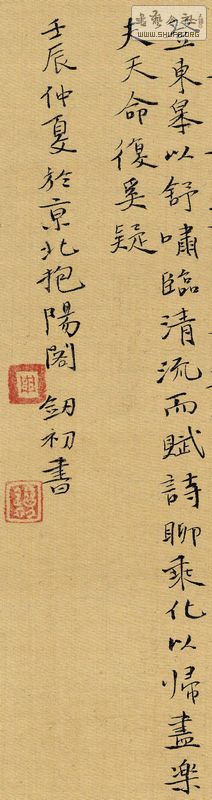 登東皋以舒嘯臨清流而賦詩聊乘化以歸盡樂
夫天命復奚疑
壬辰仲夏於京北抱陽閣劍初書
书艺公社
www.shufa.org